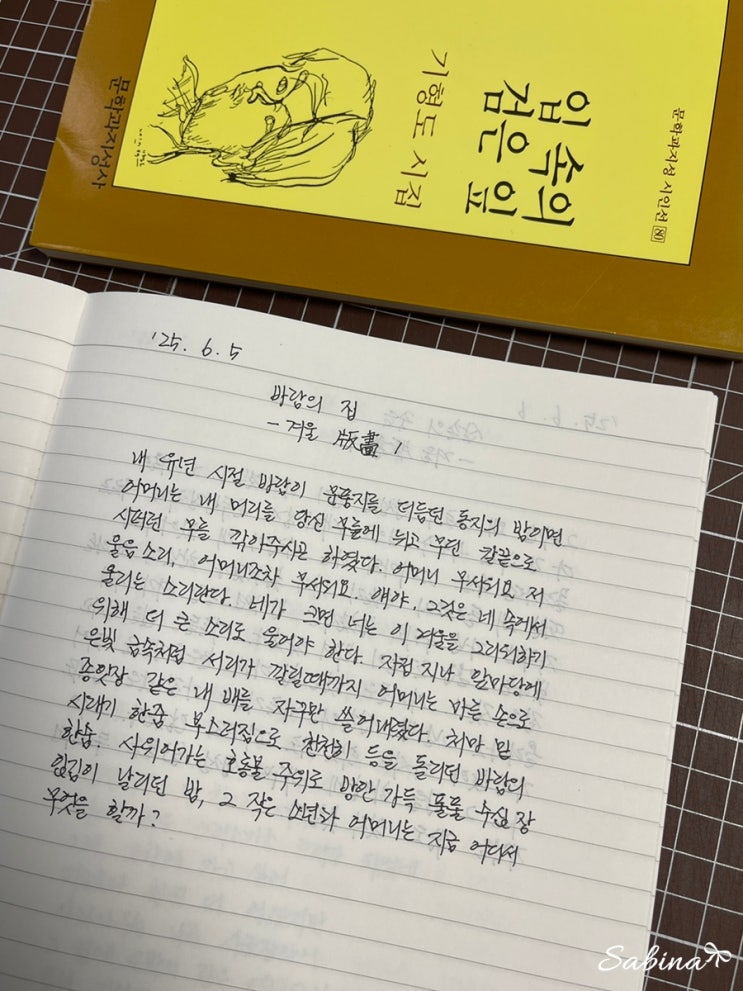 문학과지성 시인선 80
입 속의
검은 잎
기형도 시집
문학과지성사
'25. 6. 5
바람의 집
- 겨울 版畫 1
내 유년 시절 바람이 문풍지를 더듬던 동지의 밤이면
어머니는 내 머리를 당신 무릎에 뉘고 무딘 칼끝으로
시퍼런 무를 깎아주시곤 하였다. 어머니 무서워요 저
울음소리, 어머니조차 무서워요. 얘야, 그것은 네 속에서
울리는 소리란다. 네가 크면 너는 이 겨울을 그리워하기
위해 더 큰 소리로 울어야 한다. 자정 지나 앞마당에
은빛 금속처럼 서리가 깔릴때까지 어머니는 마른 손으로
종잇장 같은 내 배를 자꾸만 쓸어내렸다. 처마 밑
시래기 한줌 부스러짐으로 천천히 등을 돌리던 바람의
한숨. 사위어가는 호롱불 주위로 방안 가득 풀풀 수십 장
입김이 날리던 밤, 그 작은 소년과 어머니는 지금 어디서
무엇을 할까?
Sabina